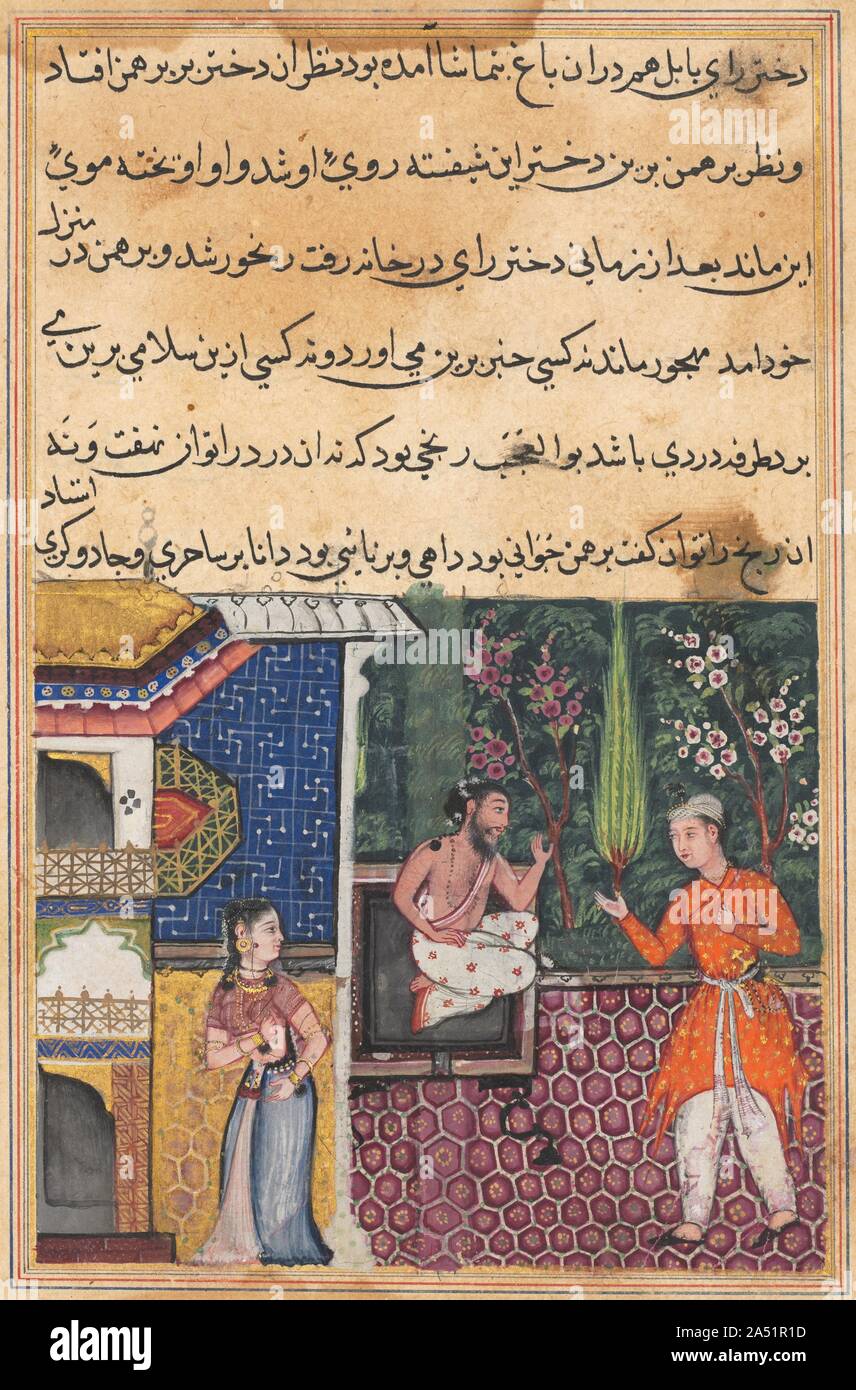 دختر راي بابل هم دران باغ بتماشا امده بود نظر ان دختر بر برهمن افتاد
و نظر برهمن برين دختر اين شيفته روي او شد و او اوتخته موي
اين ماند بعد از زماني دختر راي در خانه رفت رنجور شد و برهمن در منزل
خود امد مهجور ماند نه کسي خبر برين مي اورد و نه کسي ازين سلامي برين مي
برد طرفه دردي باشد بوالعجب رنجي بود که نه ان درد را توان نهفت و نه
ان رنج را توان کفت برهمن جواني بود داهي و برنائي بود دانا بر ساحري و جادوکري استاد
alamy
alamy
Image ID: 2A51R1D
www.alamy.com